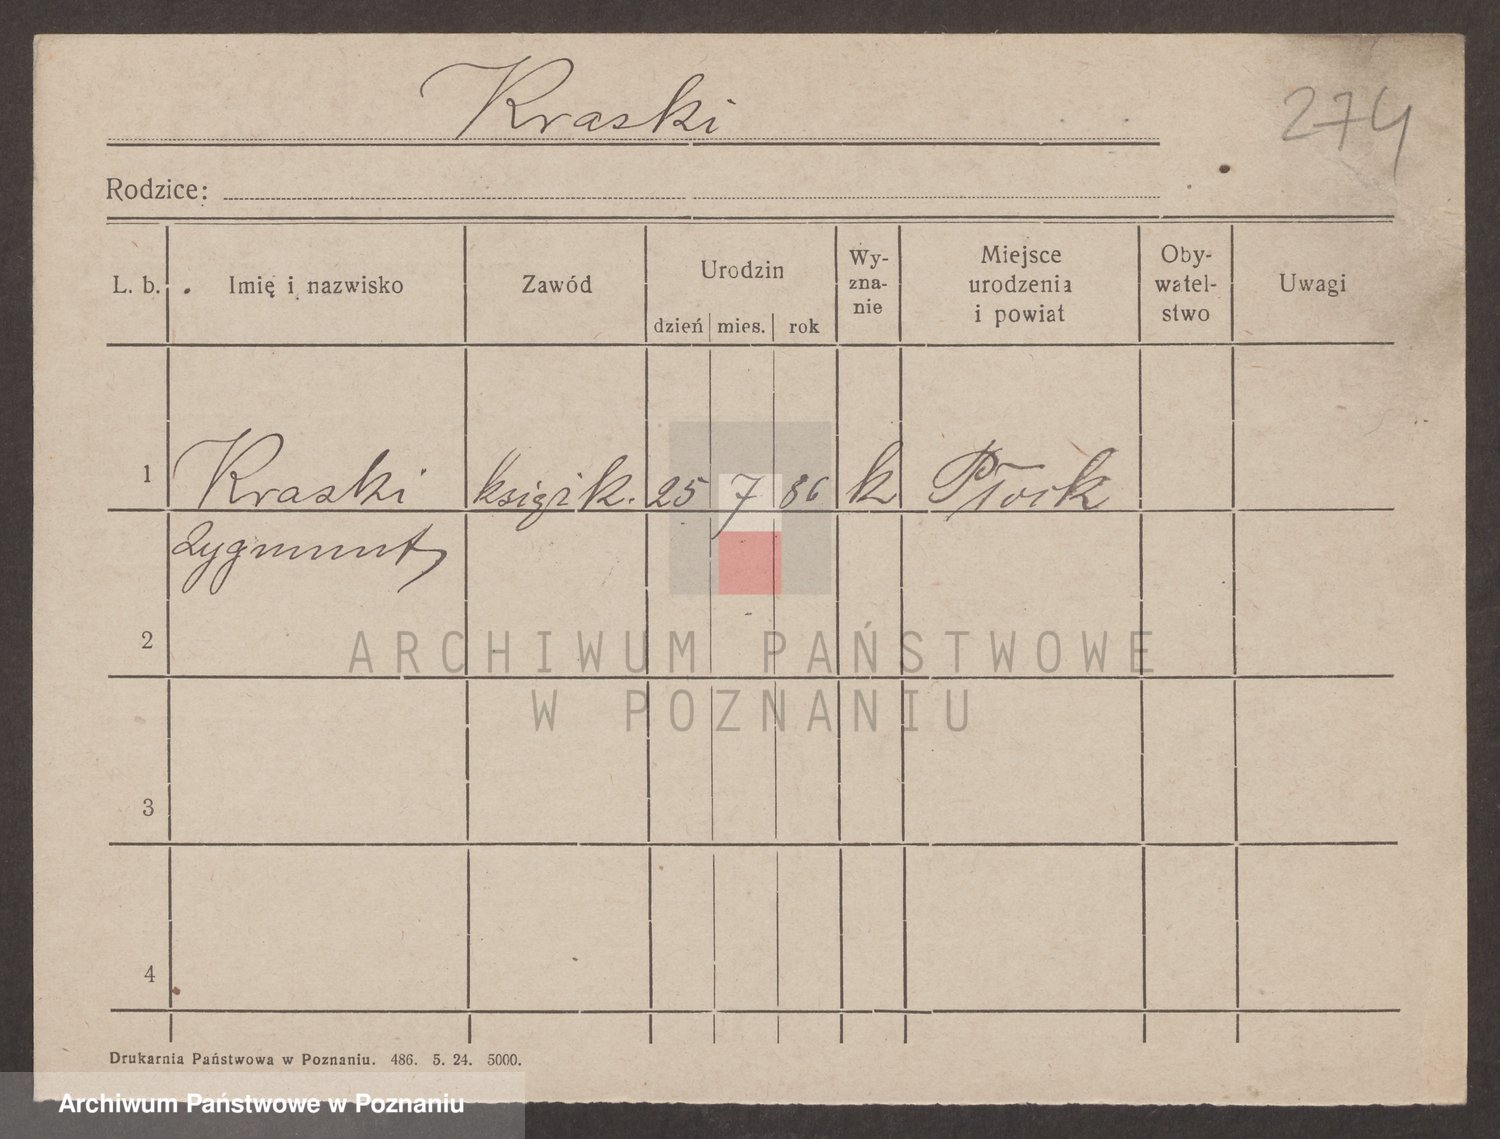 Kraski
274
Rodzice:
L. b.
Imię i nazwisko
Zawód
Urodzin
dzień mies. rok
Wy-
zna-
nie
Miejsce
urodzenia
i powiat
Oby-
watel-
stwo
Uwagi
1 Kraski 25 7 86 k Płock
Zygmunt
2
3
4
ARCHIWUM PAŃSTWOWE
W POZNANIU
Drukarnia Państwowa w Poznaniu. 486. 5. 24. 5000.
Archiwum Państwowe w Poznaniu